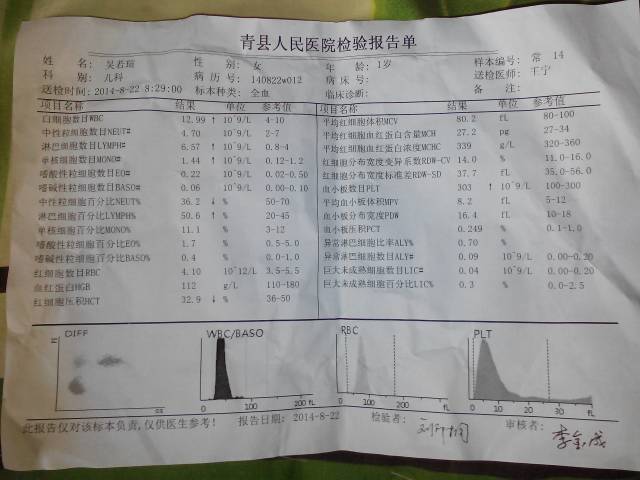 青县人民医院检验报告单
姓 名: 吴若瑄 性 别: 女 年 龄: 1岁 样本编号: 常 14
科 别: 儿科 病 历 号: 140822w012 病 床 号: 送检医师: 王宁
送检时间: 2014-8-22 8:29:00 标本种类: 全血 临床诊断: 备 注:
项目名称 结果 单位 参考值 项目名称 结果 单位 参考值
白细胞数目WBC 12.99 ↑ 10^9/L 4-10 平均红细胞体积MCV 80.2 fL 80-100
中性粒细胞数目NEUT# 4.70 10^9/L 2-7 平均红细胞血红蛋白含量MCH 27.2 pg 27-34
淋巴细胞数目LYMPH# 6.57 ↑ 10^9/L 0.8-4 平均红细胞血红蛋白浓度MCHC 339 g/L 320-360
单核细胞数目MONO# 1.44 ↑ 10^9/L 0.12-1.2 红细胞分布宽度变异系数RDW-CV 14.0 % 11.0-16.0
嗜酸性粒细胞数目EO# 0.22 10^9/L 0.02-0.50 红细胞分布宽度标准差RDW-SD 37.7 fL 35.0-56.0
嗜碱性粒细胞数目BASO# 0.06 10^9/L 0.00-0.10 血小板数目PLT 303 ↑ 10^9/L 100-300
中性粒细胞百分比NEUT% 36.2 ↓ % 50-70 平均血小板体积MPV 8.2 fL 5-12
淋巴细胞百分比LYMPH% 50.6 ↑ % 20-45 血小板分布宽度PDW 16.4 fL 10-18
单核细胞百分比MONO% 11.1 % 3-12 血小板压积PCT 0.249 % 0.1-1.0
嗜酸性粒细胞百分比EO% 1.7 % 0.5-5.0 异常淋巴细胞比率ALY% 0.70 %
嗜碱性粒细胞百分比BASO% 0.4 % 0.0-1.0 异常淋巴细胞数目ALY# 0.09 10^9/L 0.00-0.20
红细胞数目RBC 4.10 10^12/L 3.5-5.5 巨大未成熟细胞数目LIC# 0.04 10^9/L 0.00-0.20
血红蛋白HGB 112 g/L 110-180 巨大未成熟细胞百分比LIC% 0.3 % 0.0-2.5
红细胞压积HCT 32.9 ↓ % 36-50
DIFF WBC/BASO RBC PLT
0 100 200 fL 0 100 200 fL 0 10 20 30 fL
此报告仅对该标本负责,仅供医生参考! 报告日期: 2014-8-22 检验者: 审核者: